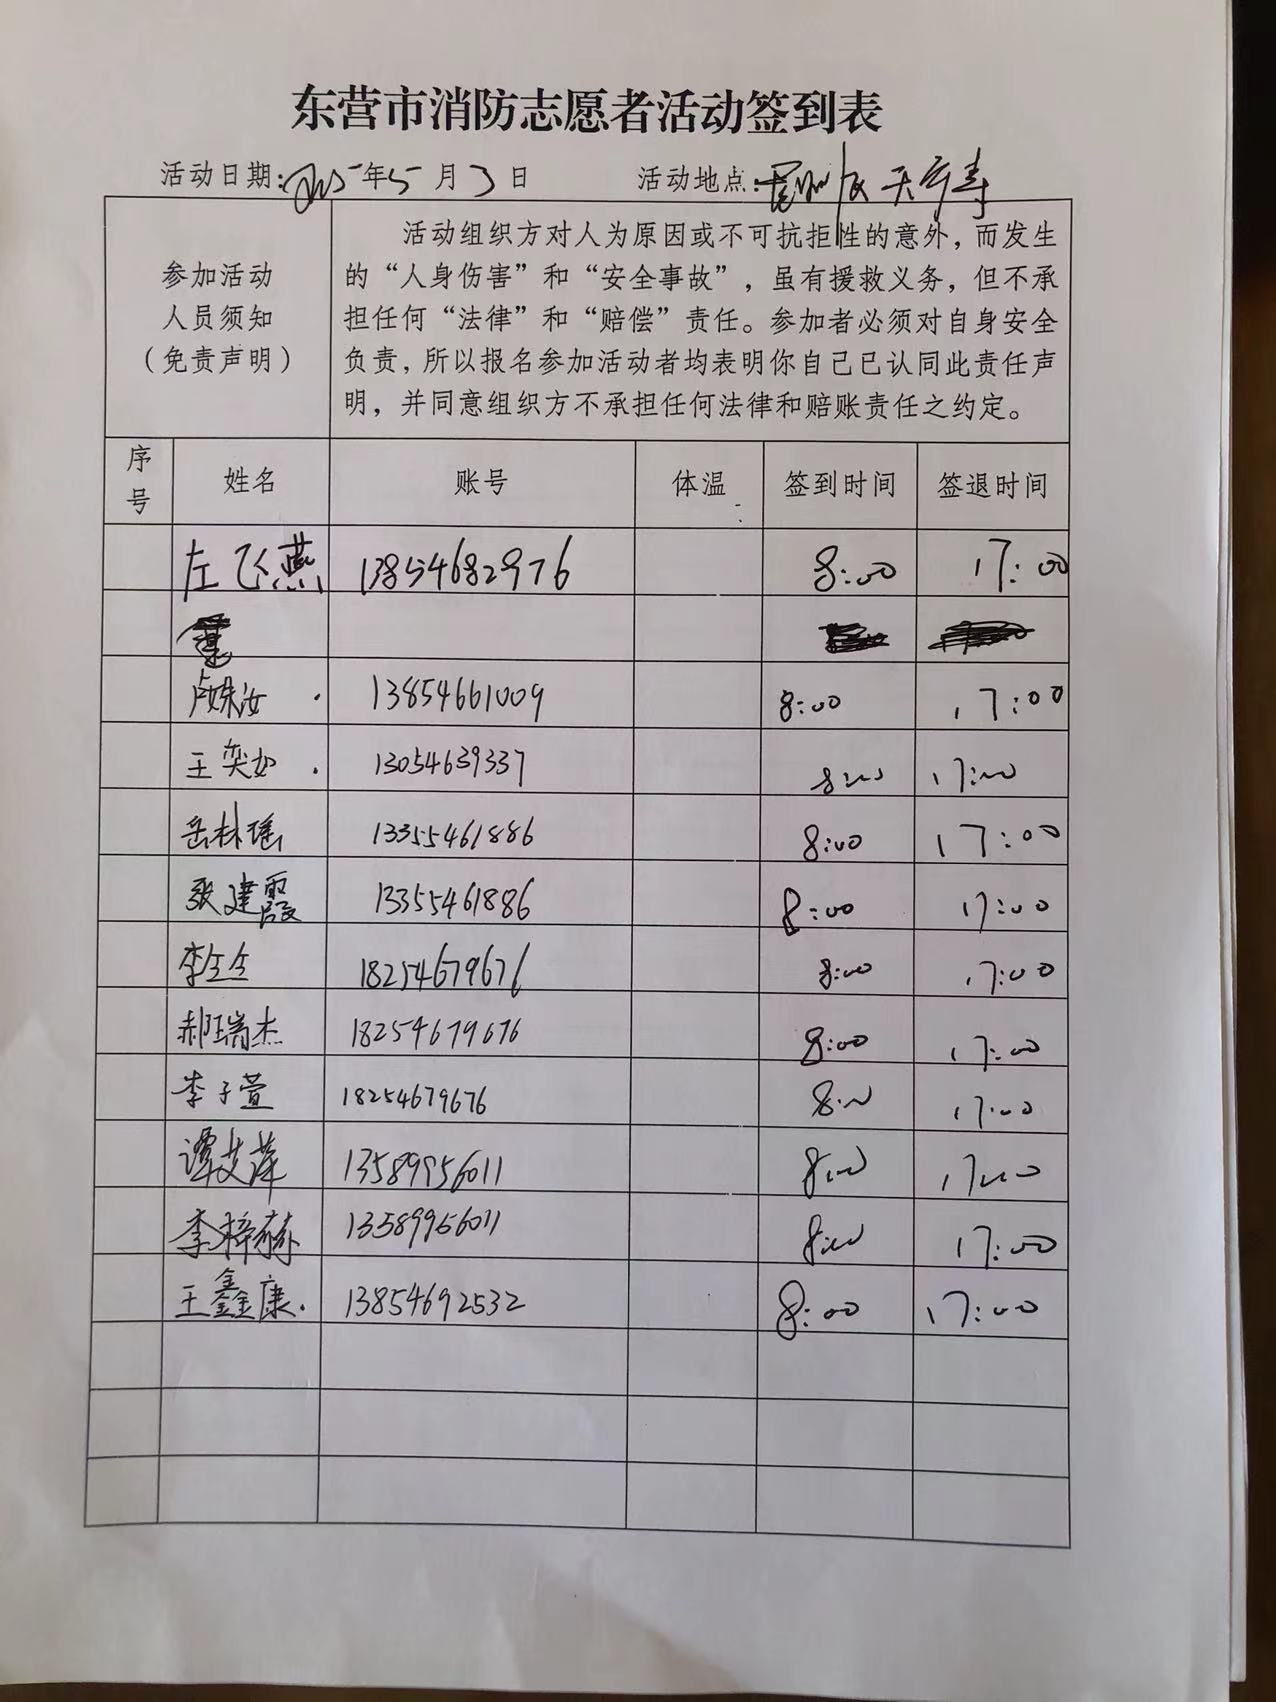 东营市消防志愿者活动签到表
活动日期:2025年5月3日 活动地点:
参加活动
人员须知
（免责声明）
活动组织方对人为原因或不可抗拒性的意外，而发生
的“人身伤害”和“安全事故”，虽有援救义务，但不承
担任何“法律”和“赔偿”责任。参加者必须对自身安全
负责，所以报名参加活动者均表明你自己已认同此责任声
明，并同意组织方不承担任何法律和赔账责任之约定。
序号 姓名 账号 体温 签到时间 签退时间
左飞燕 13854682976 8:00 17:00
卢姝汝 13854661009 8:00 17:00
王奕如 13054639337 8:00 17:00
岳林瑶 13355461886 8:00 17:00
张建霞 13355461886 8:00 17:00
李全全 18254679676 8:00 17:00
郝瑞杰 18254679676 8:00 17:00
李子萱 18254679676 8:00 17:00
谭艾萍 13589956011 8:00 17:00
李梓赫 13589956011 8:00 17:00
王鑫康 13854692532 8:00 17:00